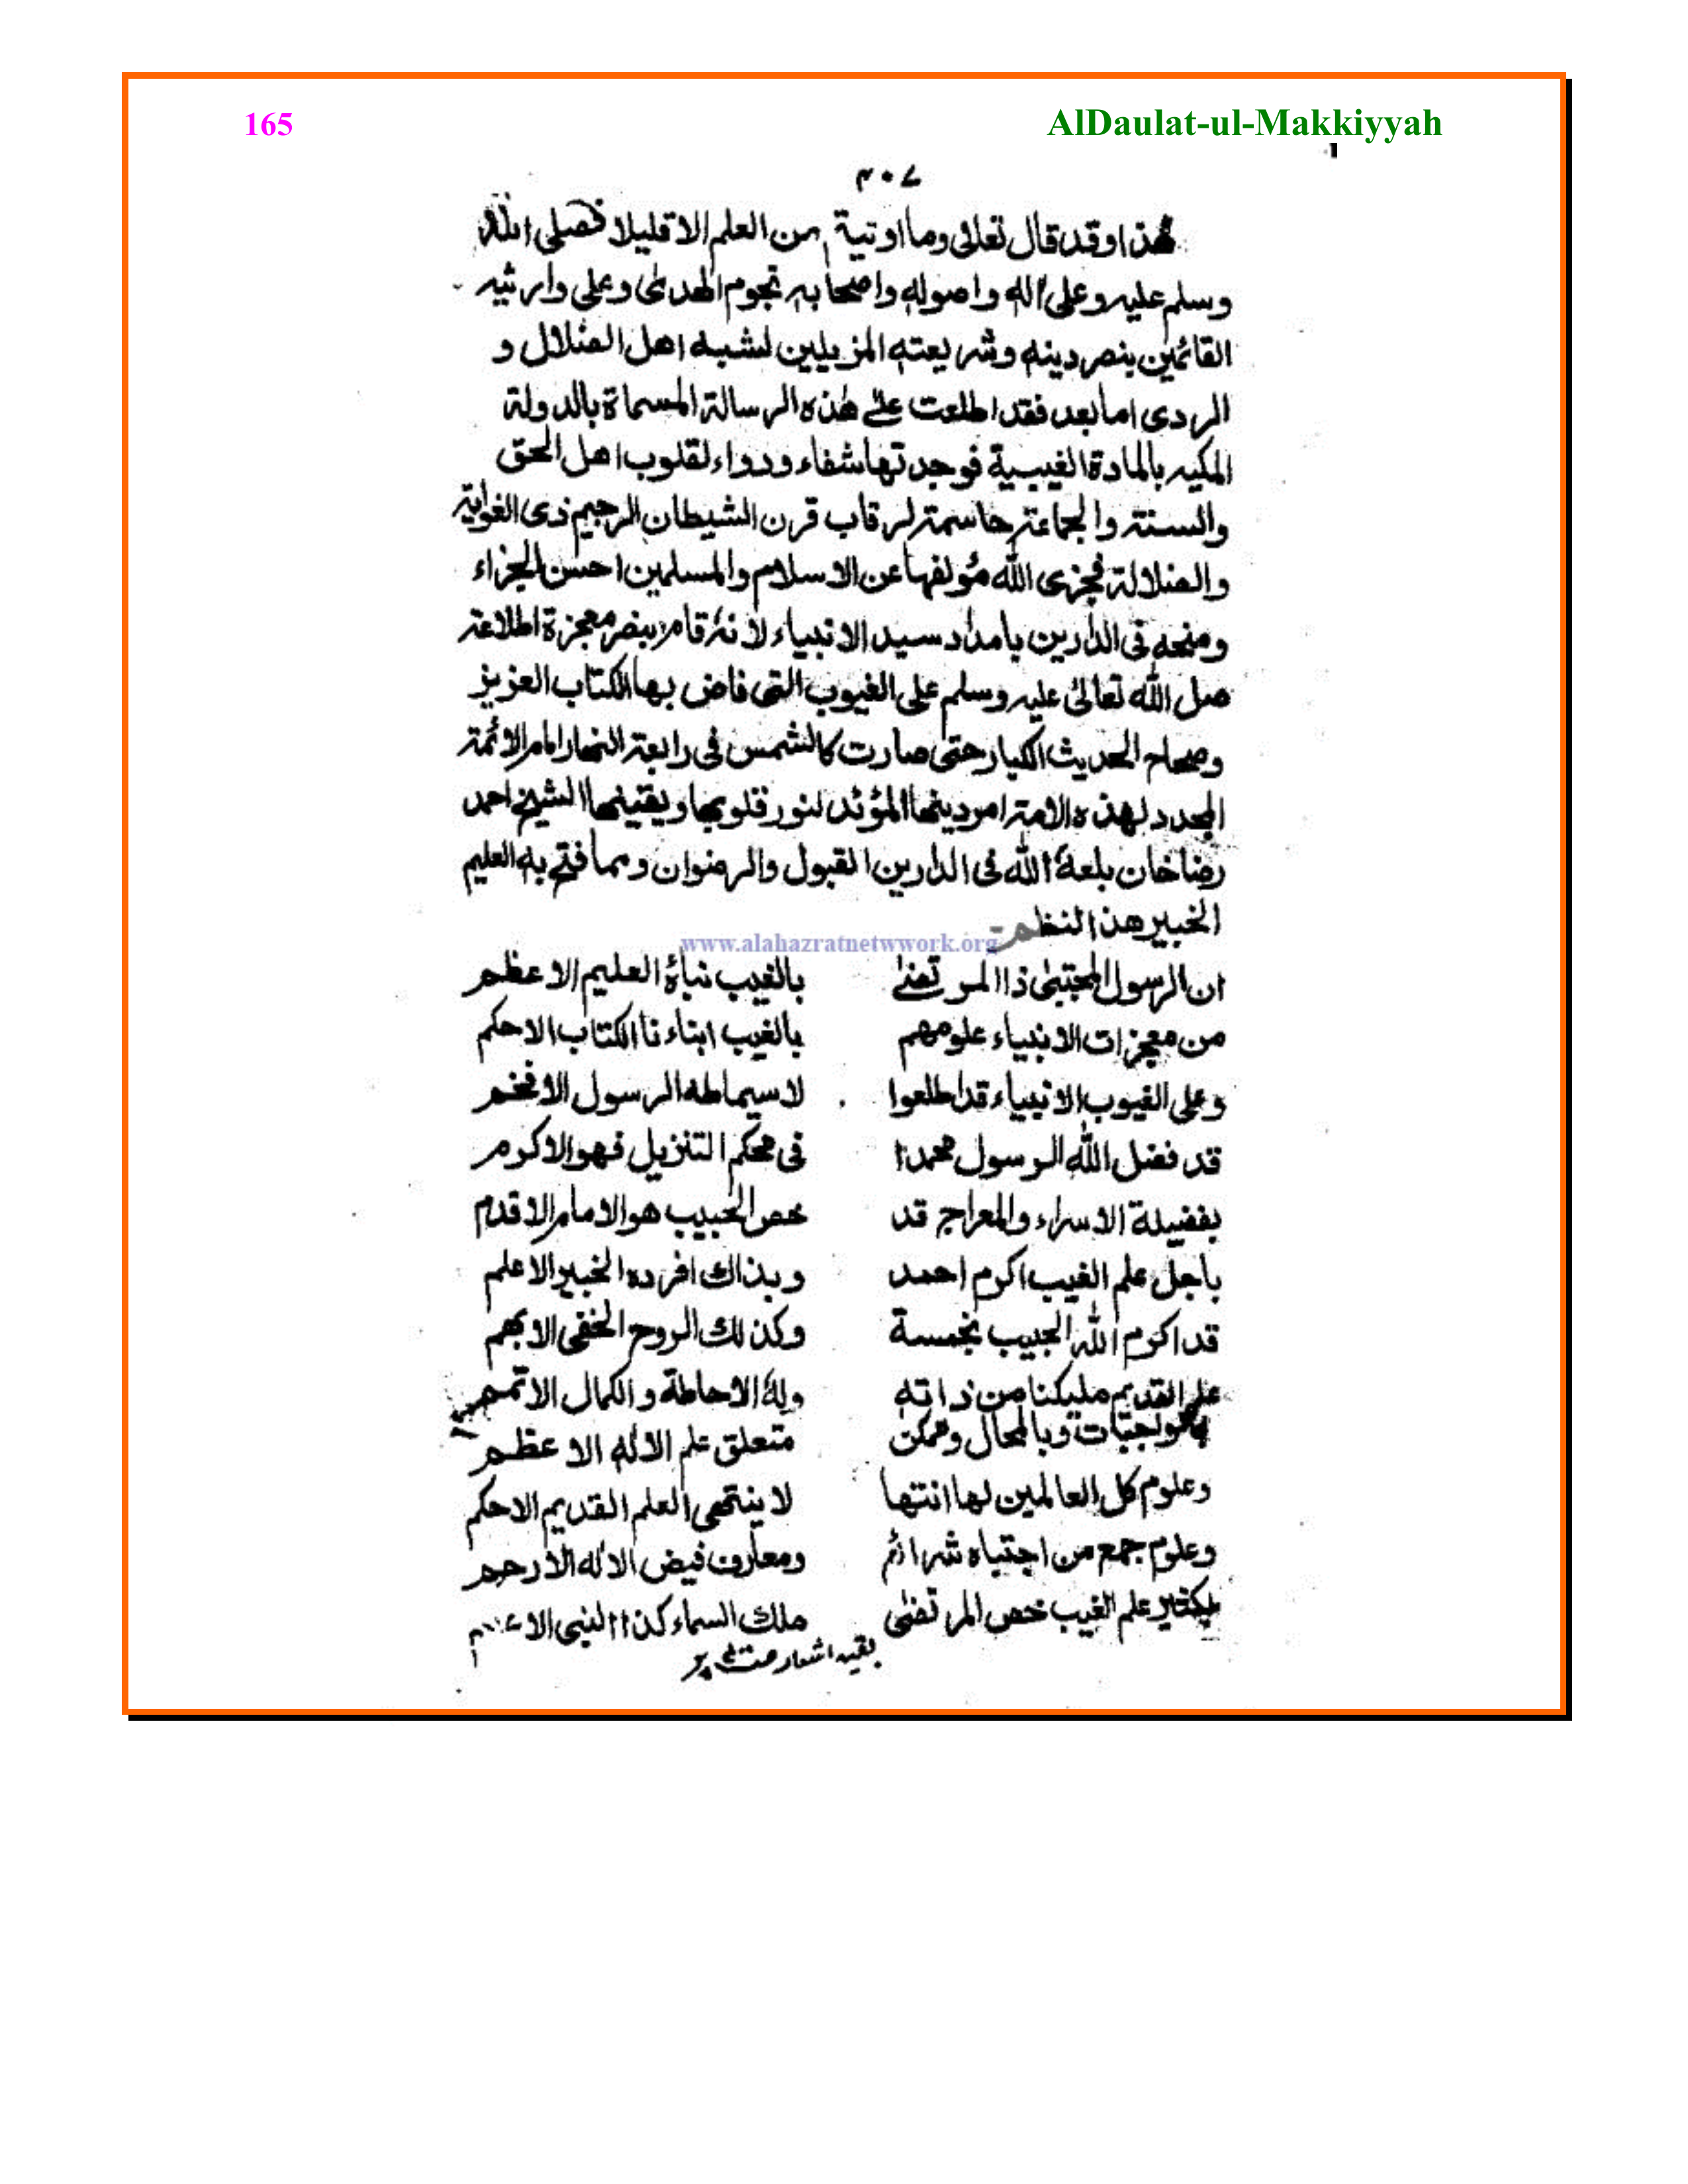 165 AlDaulat-ul-Makkiyyah
هذا وقد قال تعالى وما اوتية من العلم الا قليلا فصلى الله
وسلم عليه وعلى اٰله واصوله واصحابه نجوم الهدىٰ وعلى وارثيه
القائمين بنصر دينه وشريعته المزيلين لشبه اهل الضلال و
الردى اما بعد فقد اطلعت علىٰ هٰذه الرسالة المسماة بالدولة
المكيه بالمادة الغيبية فوجدتها شفاء ودواء لقلوب اهل الحق
والسنة والجماعة حاسمة لرقاب قرن الشيطان الرجيم ذى الغواية
والضلالة فجزى الله مؤلفها عن الاسلام والمسلمين احسن الجزاء
ومنحه فى الدارين بامداد سيد الانبياء لانه قام بنصر معجزة اطلاعة
صل الله تعالىٰ عليه وسلم على الغيوب التى فاض بها الكتاب العزيز
وصحاح الحديث الكبار حتى صارت كالشمس فى رابعة النهار امام الائمة
المجدد لهذه الامة امر دينها المؤئد لنور قلوبها ويقينها الشيخ احمد
رضا خان بلعهٗ الله فى الدارين القبول والرضوان ومما فتح به العليم
الخبير هذا النظم
www.alahazratnetwwork.org
ان الرسول المجتبىٰ ذا المرتضىٰ بالغيب نبأهٗ العليم الاعظم
من معجزات الانبياء علومهم بالغيب ابناءنا الكتاب الاحكم
وعلى الغيوب الانبياء قد اطلعوا لاسيما طه الرسول الافخم
قد فضل الله الرسول محمدا فى محكم التنزيل فهو الاكرم
بفضيلة الاسراء والمعراج قد خص الحبيب هو الامام الاقدم
باجل علم الغيب اكرم احمد وبذاك افرده الخبير الاعلم
قد اكرم الله الحبيب بخمسة وكذلك الروح الخفى الابهم
علم القديم مليكنا من ذاته ولهٗ الاحاطة والكمال الاتمم
وبالمحال وممكن متعلق علم الاله الاعظم
وعلوم كل العالمين لها انتها لا ينتهى العلم القديم الاحكم
وعلوم جمع من اجتباه شرائع ومعارف فيض الاله الارحم
بكثير علم الغيب خص المرتضىٰ ملك السماء كذا النبى
بقيه اشعار پر